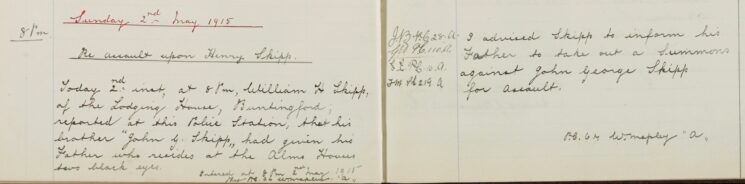 Sunday 2nd May 1915
8 Pm
Re assault upon Henry Skipp.
Today 2nd inst, at 8 Pm, William H Skipp,
of the Lodging House, Buntingford,
reported at this Police Station, that his
brother "John G. Skipp" had given his
Father who resides at the Alms Houses
two black eyes.
Entered at 8 Pm 2nd May 1915
P.C. 64 "A"
I advised Skipp to inform his
Father to take out a Summons
against John George Skipp
for assault.
P.C. 64 "A"